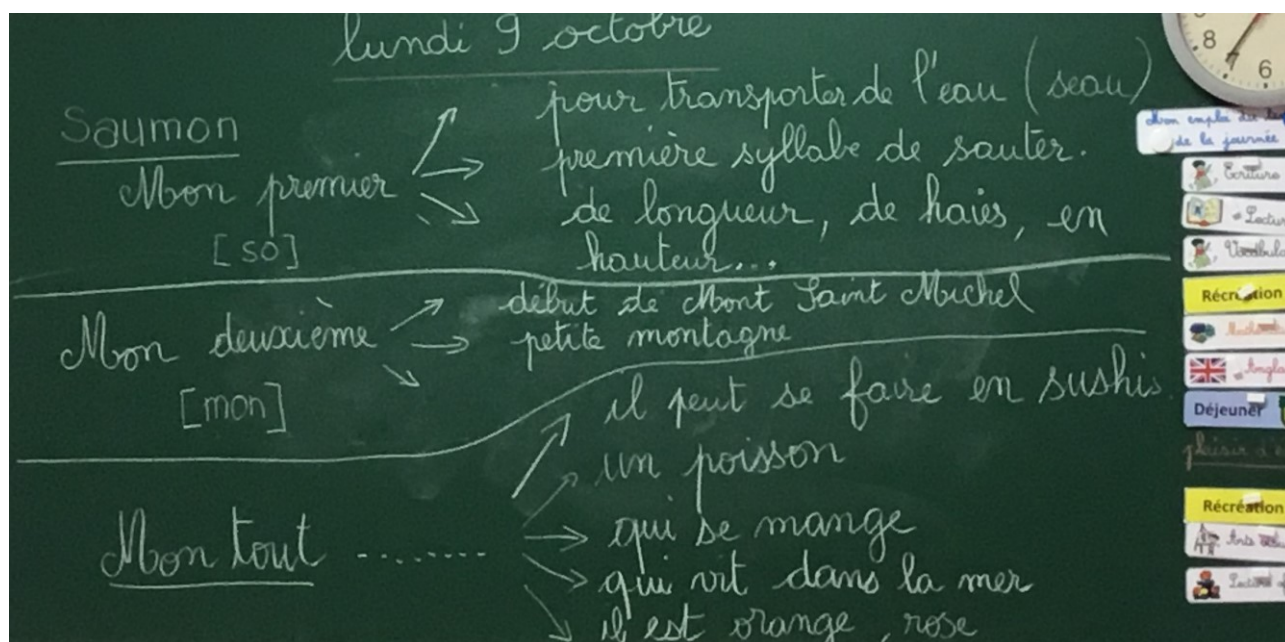 lundi 9 octobre
Saumon
Mon premier
[so]
pour transporter de l'eau (seau)
première syllabe de sauter.
de longueur, de haies, en
hauteur...
Mon deuxième
[mon]
début de Mont Saint Michel
petite montagne
Mon tout ........
il peut se faire en sushis.
un poisson
qui se mange
qui vit dans la mer
il est orange, rose
8
7
6
Mon emploi du
de la journée
Écriture
Lectur
Vocabula
Récréation
Angla
Déjeuner
plaisir d'é
Récréation
Arts